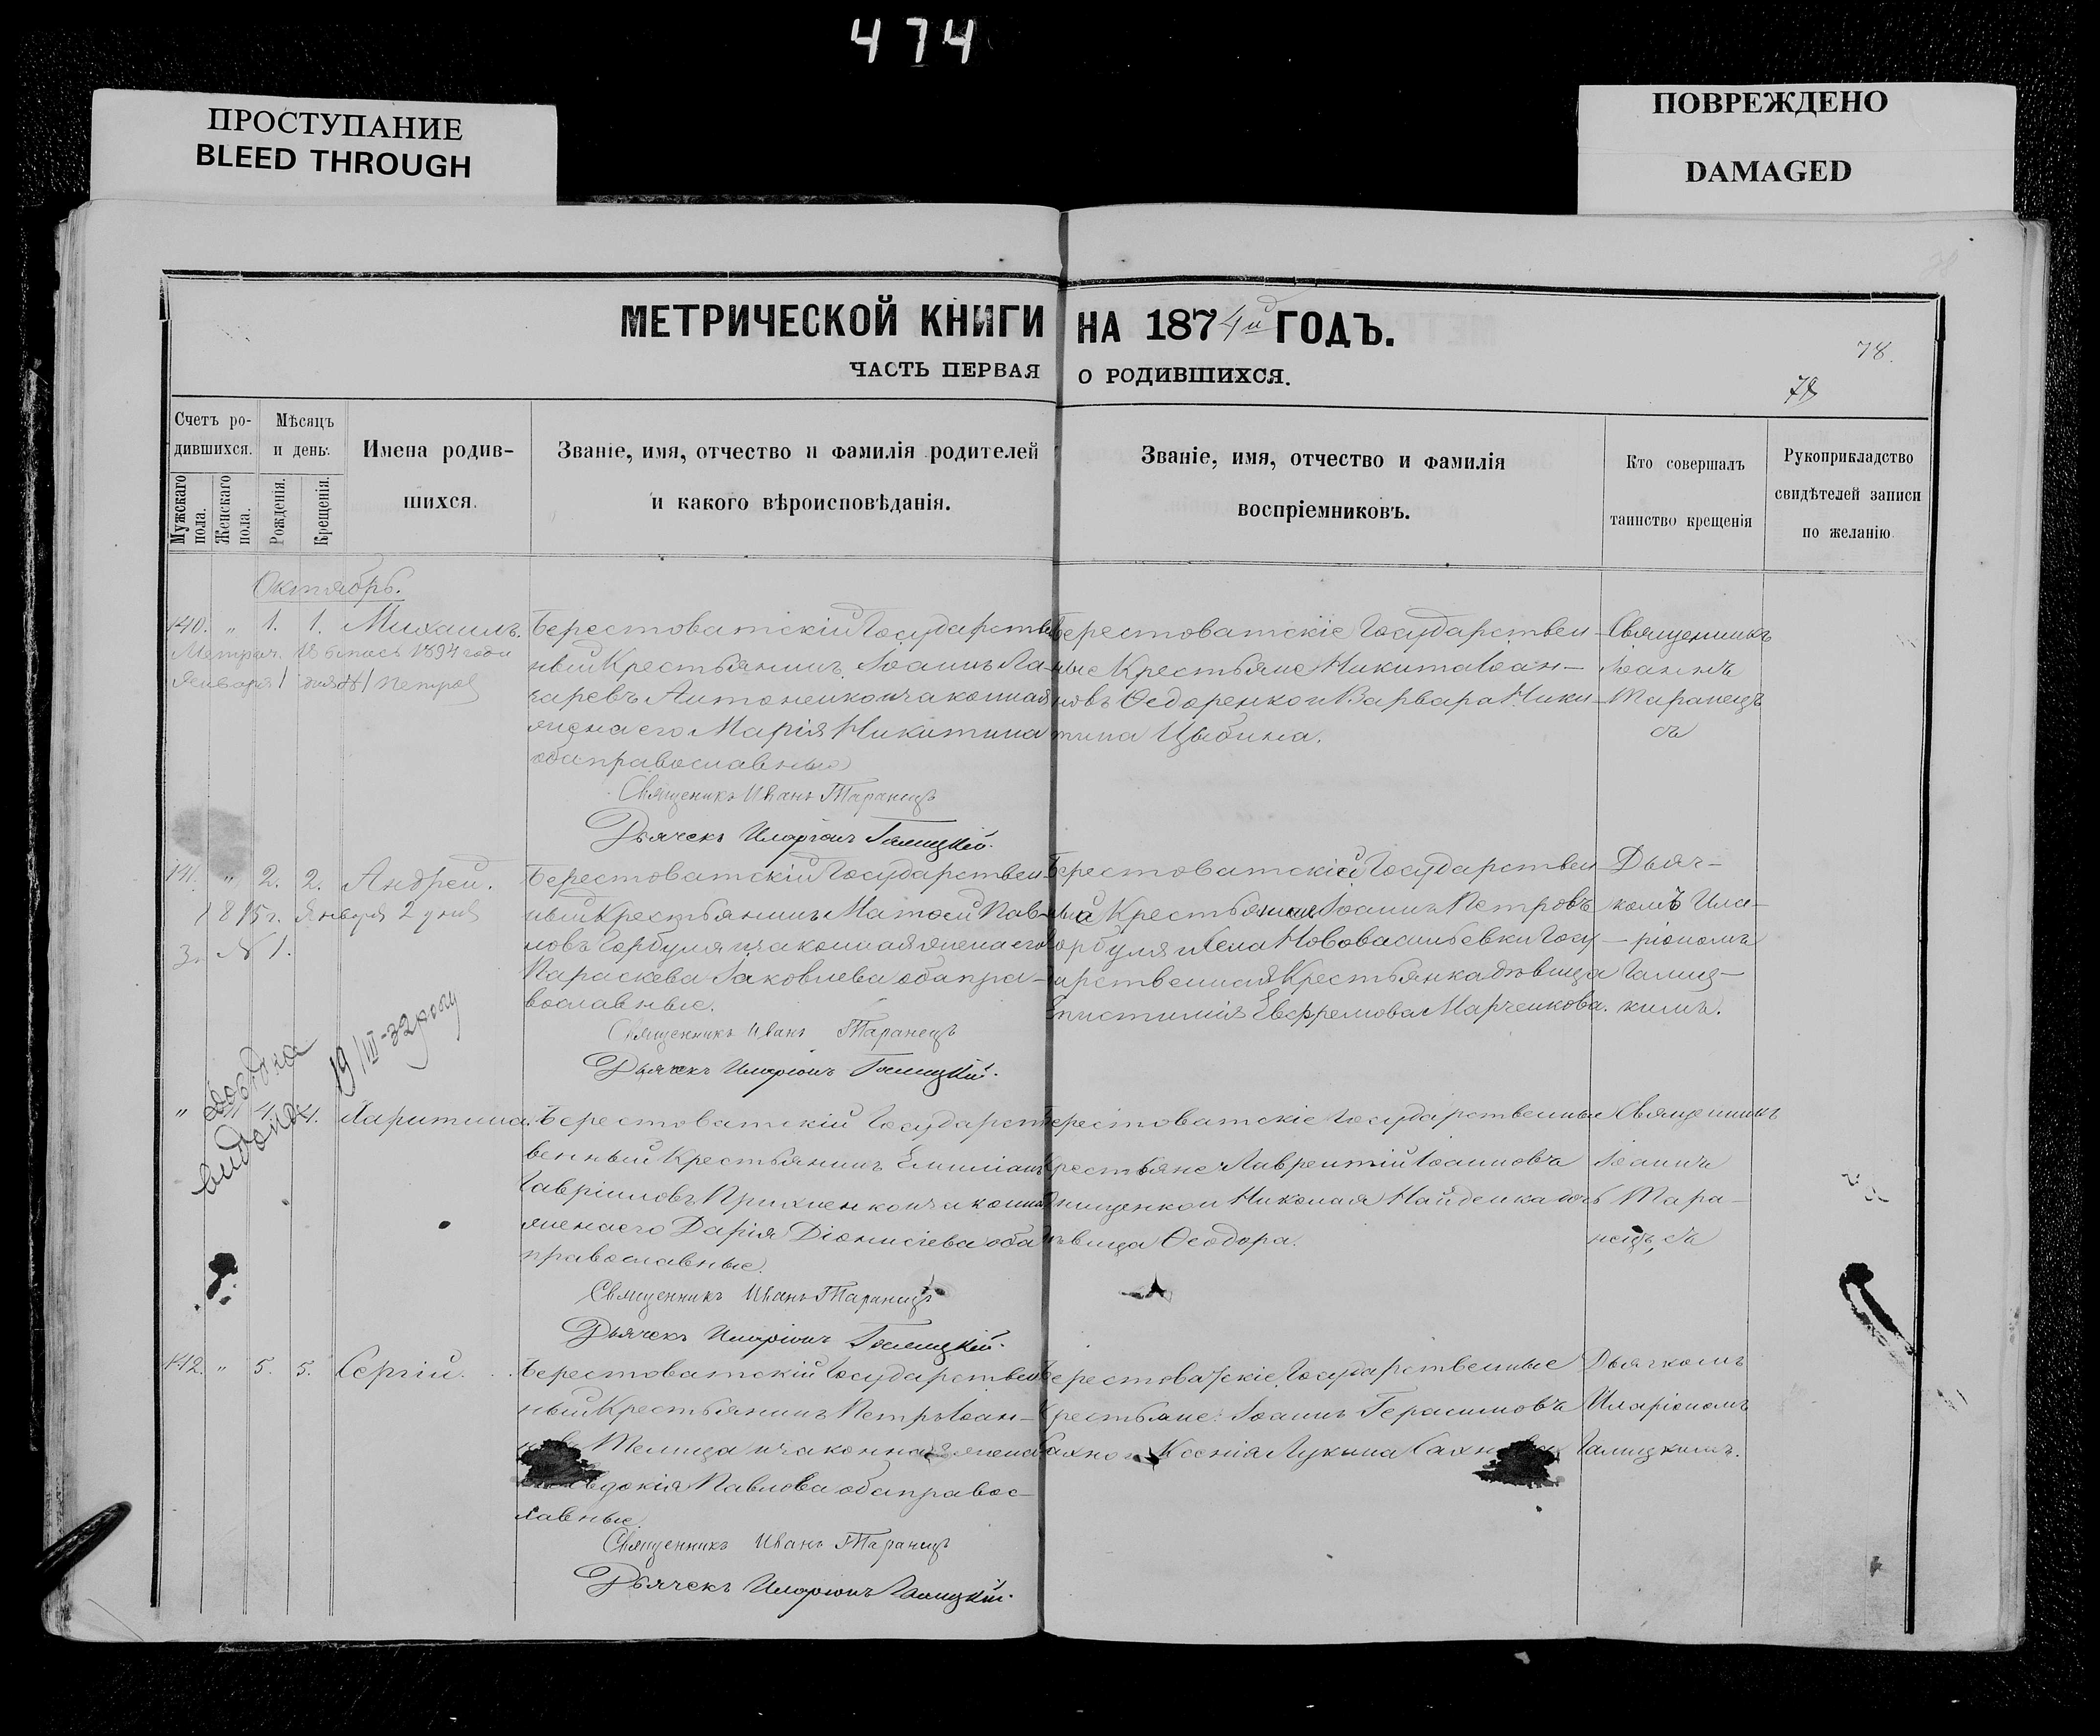 474
ПРОСТУПАНИЕ
BLEED THROUGH
ПОВРЕЖДЕНО
DAMAGED
МЕТРИЧЕСКОЙ КНИГИ НА 1874й ГОДЪ.
ЧАСТЬ ПЕРВАЯ О РОДИВШИХСЯ.
78.
78
Счетъ ро-
дившихся.
Мужскаго пола.
Женскаго пола.
Мѣсяцъ
и день.
Рожденія.
Крещенія.
Имена родив-
шихся.
Званіе, имя, отчество и фамилія родителей
и какого вѣроисповѣданія.
Званіе, имя, отчество и фамилія
воспріемниковъ.
Кто совершалъ
таинство крещенія
Рукоприкладство
свидѣтелей записи
по желанію
Октябрь.
140. " 1. 1. Михаилъ.
1894 года
Января
Берестоватскій Государствен
ный Крестьянинъ Іоаннъ Ла-
заревъ Антоненко и законная
жена его Марія Никитина
оба православные
Священикъ Иванъ Таранецъ
Дьячекъ Иларіонъ Галицкій.
Берестоватскіе Государствен-
ные Крестьяне Никита Іоан-
новъ Ѳедоренко и Варвара Ники-
тина Цыбина.
Священникъ
Іоаннъ
Таранецъ
съ
141. " 2. 2. Андрей.
1895 г. Января 2 дня
З. № 1.
Берестоватскій Государствен-
ный Крестьянинъ Матѳей Пав-
ловъ Горбуля и законная жена его
Параскева Іаковлева оба пра-
вославные.
Священникъ Иванъ Таранецъ
Дьячекъ Иларіонъ Галицкій.
Берестоватскій Государствен-
Крестьянинъ Іоаннъ Петровъ
Горбуля и Села Нововасильевки Госу-
дарственная Крестьянка дѣвица
Епистимія Евфремова Марченкова.
Дьяч-
комъ Ила-
ріономъ
Галиц-
кимъ.
видана 19/III-32 року
" 4. 4. Харитина.
Берестоватскій Государст-
венный Крестьянинъ Емиліанъ
Гавріиловъ и законная
жена его Дарія Діонисіева оба
православные.
Священникъ Иванъ Таранецъ
Дьячекъ Иларіонъ Галицкій.
Берестоватскіе Государственные
Крестьяне Лаврентій Іоанновъ
Онищенко и Николая Найденка дочь
дѣвица Ѳеодора.
Священникъ
Іоаннъ
Тара-
нецъ, съ
142. " 5. 5. Сергій.
Берестоватскій Государствен
ный Крестьянинъ Петръ Іоан-
Телица и законная жена
Евдокія Павлова оба правос-
лавные.
Священникъ Иванъ Таранецъ
Дьячекъ Иларіонъ Галицкій.
Берестоватскіе Государственные
Крестьяне: Іоаннъ Герасимовъ
Сахно и Ксенія Лукина
Дьячкомъ
Иларіономъ
Галицкимъ.